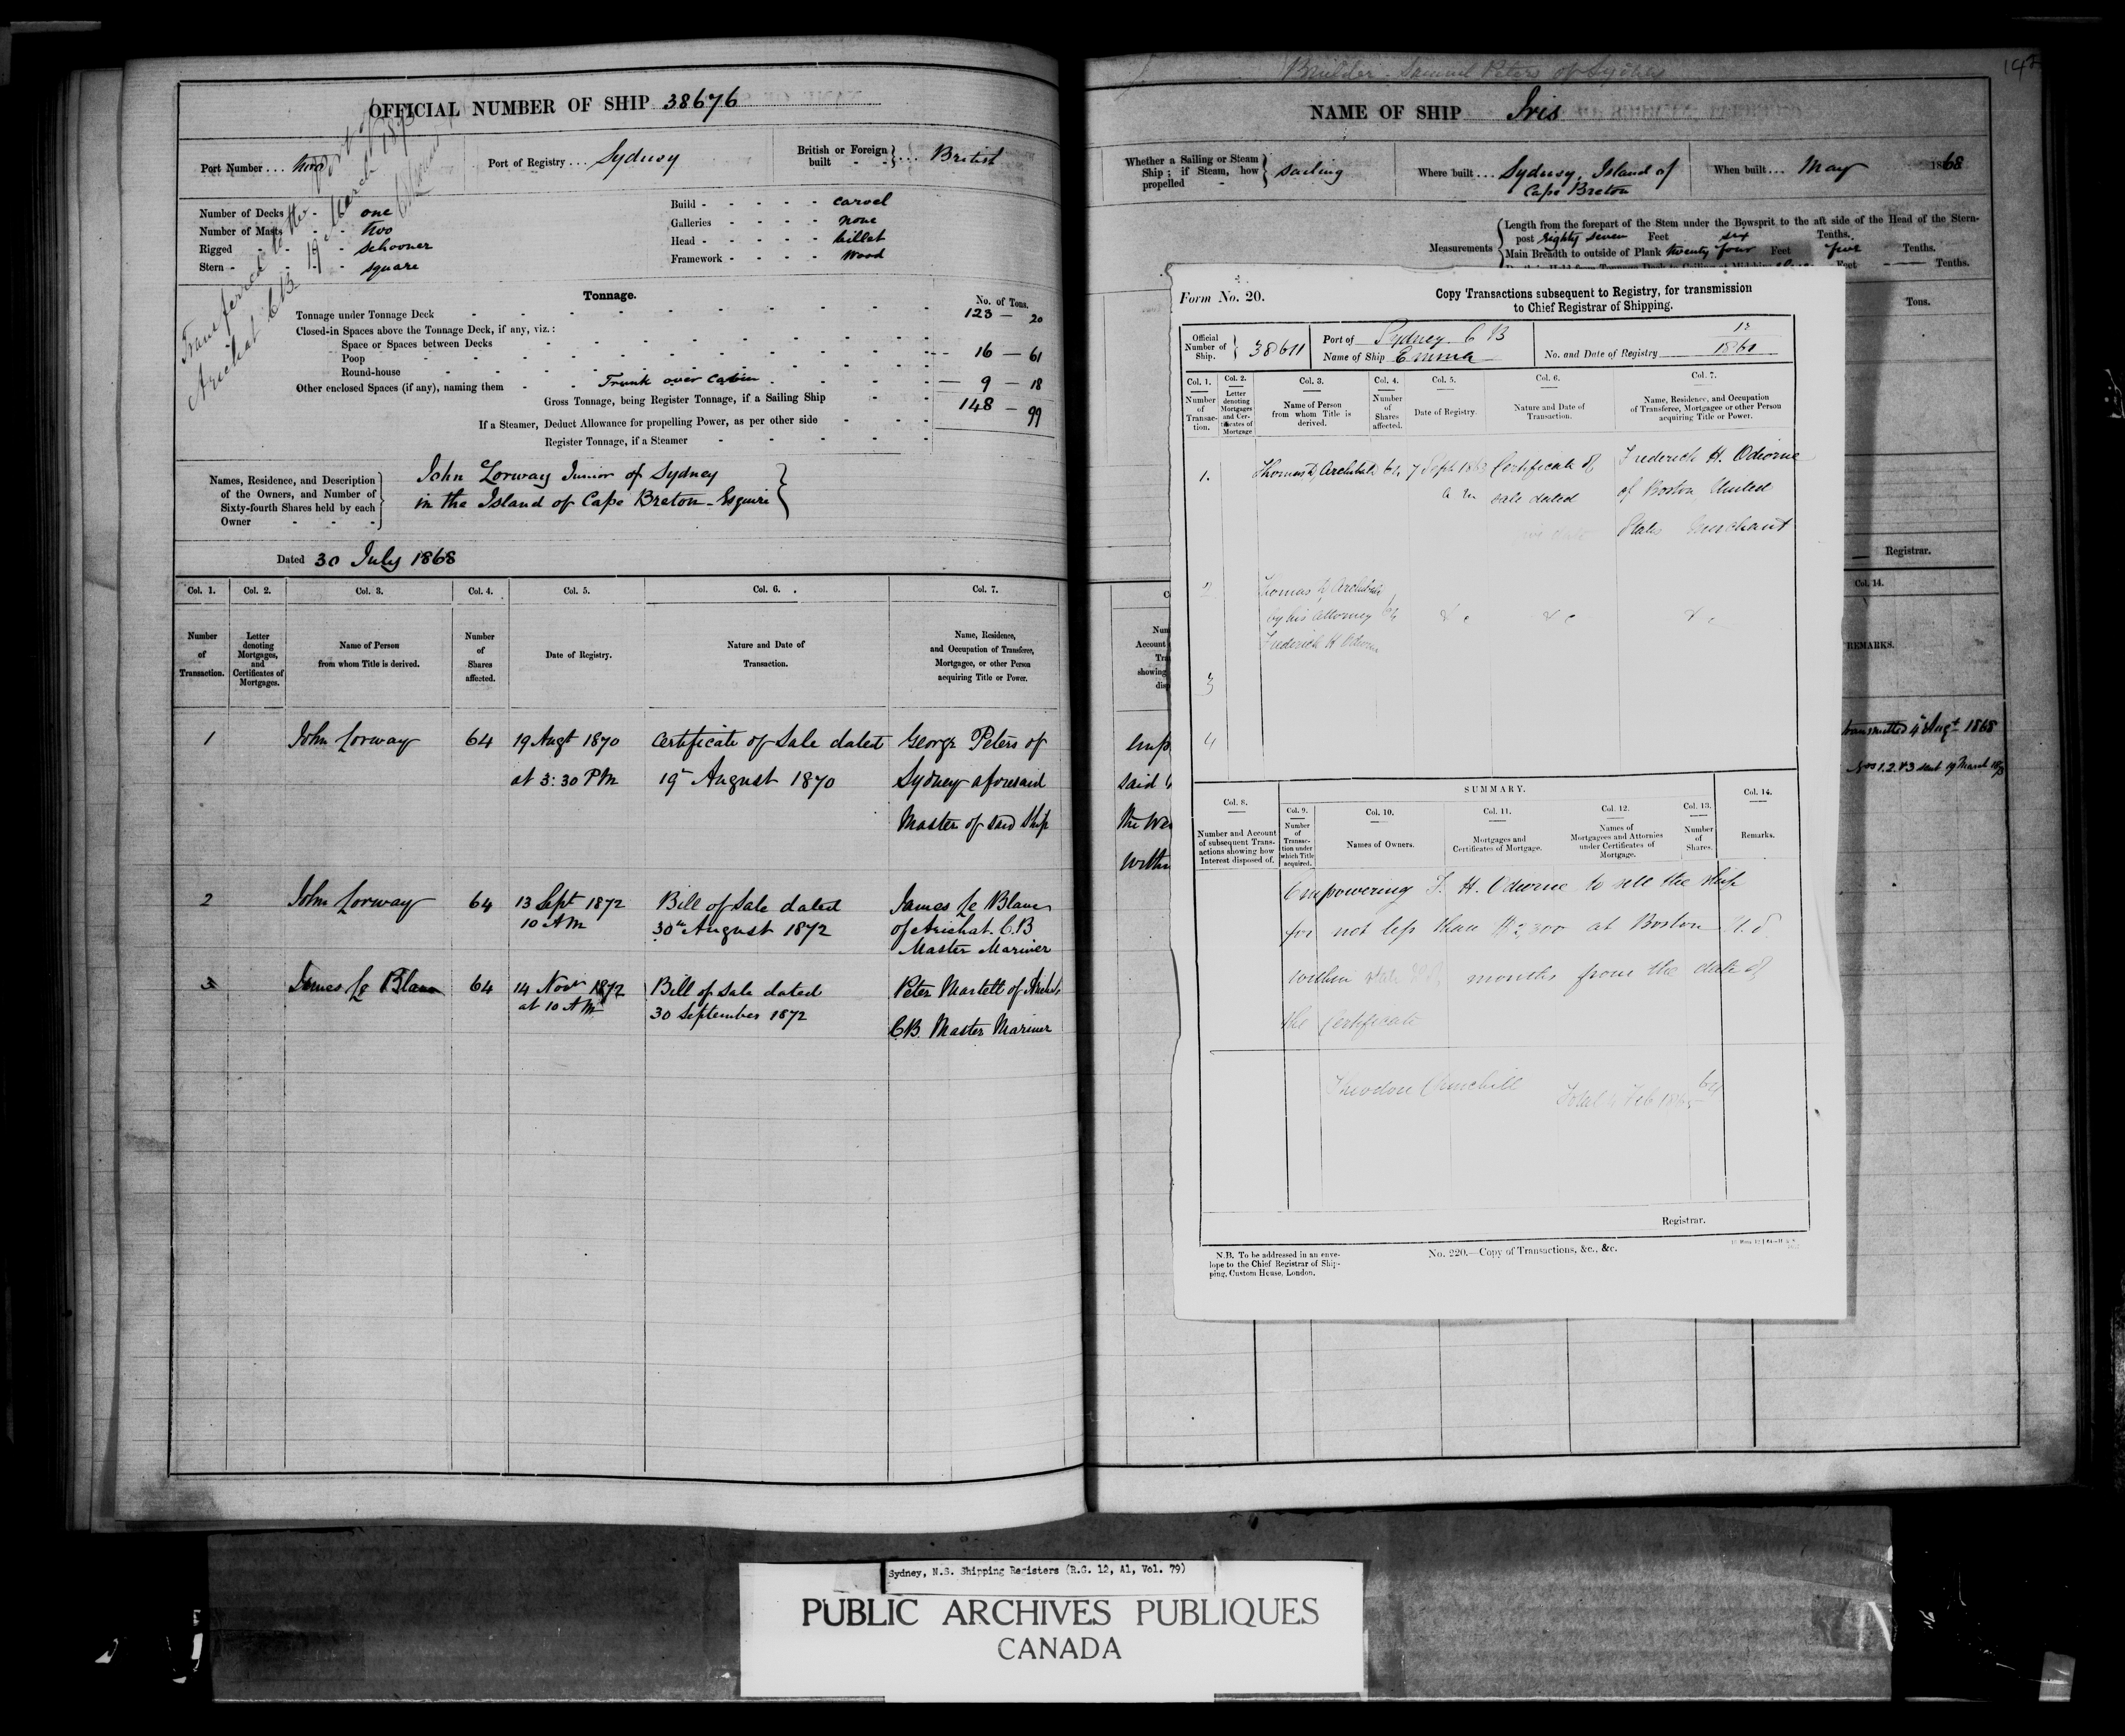 OFFICIAL NUMBER OF SHIP 38676
Port Number ... two
Port of Registry ... Sydney
British or Foreign built - - } ... British
Transferred to the Port of
Arichat C.B. 19 March 1873
Number of Decks - - one
Number of Masts - - two
Rigged - - schooner
Stern - - - square
Build - - - - - carvel
Galleries - - - - none
Head - - - - - billet
Framework - - - - Wood
Tonnage.
No. of Tons.
Tonnage under Tonnage Deck 123 — 20
Closed-in Spaces above the Tonnage Deck, if any, viz.:
Space or Spaces between Decks
Poop 16 — 61
Round-house
Other enclosed Spaces (if any), naming them - - Trunk over Cabin 9 — 18
Gross Tonnage, being Register Tonnage, if a Sailing Ship 148 — 99
If a Steamer, Deduct Allowance for propelling Power, as per other side
Register Tonnage, if a Steamer
Names, Residence, and Description of the Owners, and Number of Sixty-fourth Shares held by each Owner - - - }
John Lorway Junior of Sydney
in the Island of Cape Breton - Esquire }
Dated 30 July 1868
Col. 1. Col. 2. Col. 3. Col. 4. Col. 5. Col. 6. Col. 7.
Number of Transaction.
Letter denoting Mortgages, and Certificates of Mortgages.
Name of Person from whom Title is derived.
Number of Shares affected.
Date of Registry.
Nature and Date of Transaction.
Name, Residence, and Occupation of Transferee, Mortgagee, or other Person acquiring Title or Power.
1 John Lorway 64 19 Augt 1870 Certificate of Sale dated George Peters of
at 3:30 PM 19th August 1870 Sydney aforesaid
Master of said Ship
2 John Lorway 64 13 Sept 1872 Bill of Sale dated James Le Blanc
10 AM 30th August 1872 of Arichat. C.B
Master Mariner
3 James Le Blanc 64 14 Novr 1872 Bill of Sale dated Peter Martell of Arichat
at 10 AM 30 September 1872 C.B. Master Mariner
Builder - Samuel Peters of Sydney
NAME OF SHIP Iris
Whether a Sailing or Steam Ship; if Steam, how propelled - } sailing
Where built ... Sydney, Island of
Cape Breton
When built ... May 1868
Measurements
Length from the forepart of the Stem under the Bowsprit to the aft side of the Head of the Stern-
post eighty seven Feet six Tenths.
Main Breadth to outside of Plank twenty four Feet five Tenths.
Feet — Tenths.
Tons.
Registrar.
Col. 14.
REMARKS.
transmitted 4th Augt 1868
Nos 1.2.&3 sent 19 March 1873
said
within
Form No. 20.
Copy Transactions subsequent to Registry, for transmission
to Chief Registrar of Shipping.
Official Number of Ship. } 38611
Port of Sydney C B
Name of Ship Emma
No. and Date of Registry 12
1861
Col. 1. Col. 2. Col. 3. Col. 4. Col. 5. Col. 6. Col. 7.
Number of Transaction.
Letter denoting Mortgages and Certificates of Mortgage
Name of Person from whom Title is derived.
Number of Shares affected.
Date of Registry.
Nature and Date of Transaction.
Name, Residence, and Occupation of Transferee, Mortgagee or other Person acquiring Title or Power.
1. Thomas D Archibald 64 7 Sept 186 Certificate of Frederick H. Odiorne
sale dated of Boston United
States Merchant
2 Thomas D Archibald
by his Attorney 64 &c &c &c
Frederick H Odiorne
3
4
SUMMARY.
Col. 8. Col. 9. Col. 10. Col. 11. Col. 12. Col. 13. Col. 14.
Number and Account of subsequent Transactions showing how Interest disposed of.
Number of Transaction under which Title acquired.
Names of Owners.
Mortgages and Certificates of Mortgage.
Names of Mortgagees and Attornies under Certificates of Mortgage.
Number of Shares.
Remarks.
Empowering F. H. Odiorne to sell the ship
for not less than $2,300 at Boston U.S.
within months from the date of
the Certificate
Theodore Churchill 64
Registrar.
N.B. To be addressed in an enve-
lope to the Chief Registrar of Ship-
ping, Custom House, London.
No. 220.—Copy of Transactions, &c., &c.
Sydney, N.S. Shipping Registers (R.G. 12, A1, Vol. 79)
PUBLIC ARCHIVES PUBLIQUES
CANADA